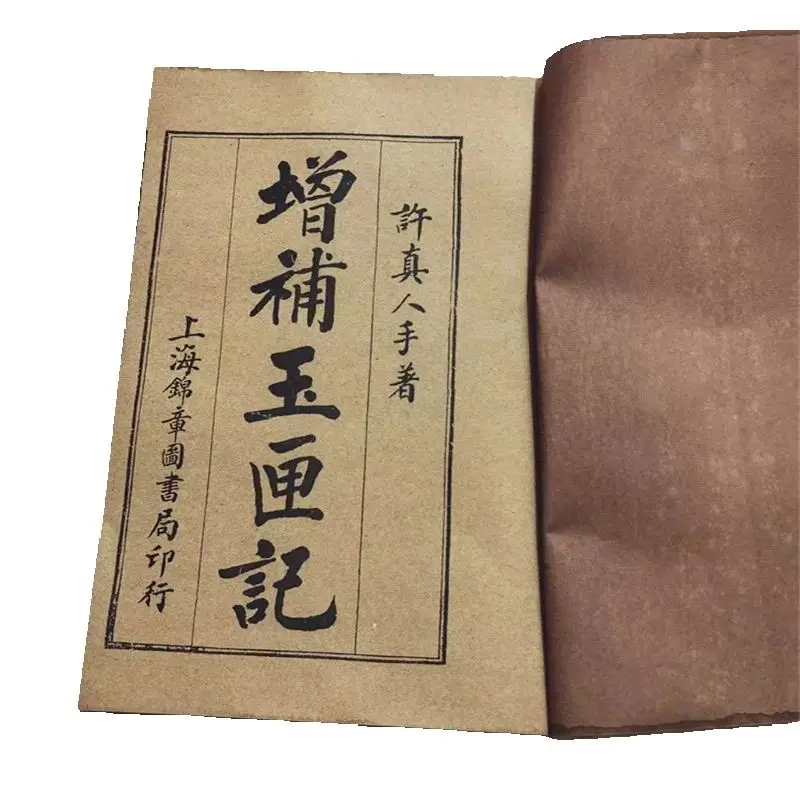 許真人手著
增補玉匣記
上海錦章圖書局印行